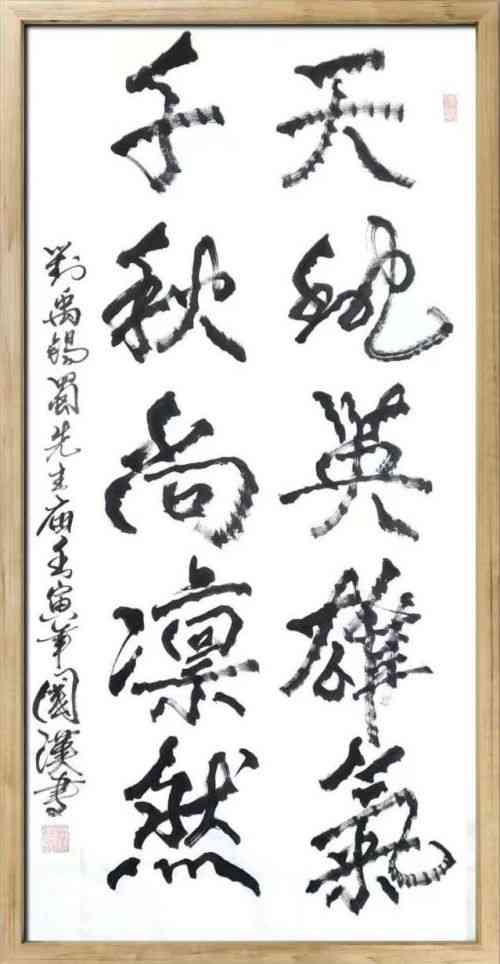 天地英雄氣
千秋尚凛然
劉禹錫蜀先生廟壬寅年國漢書